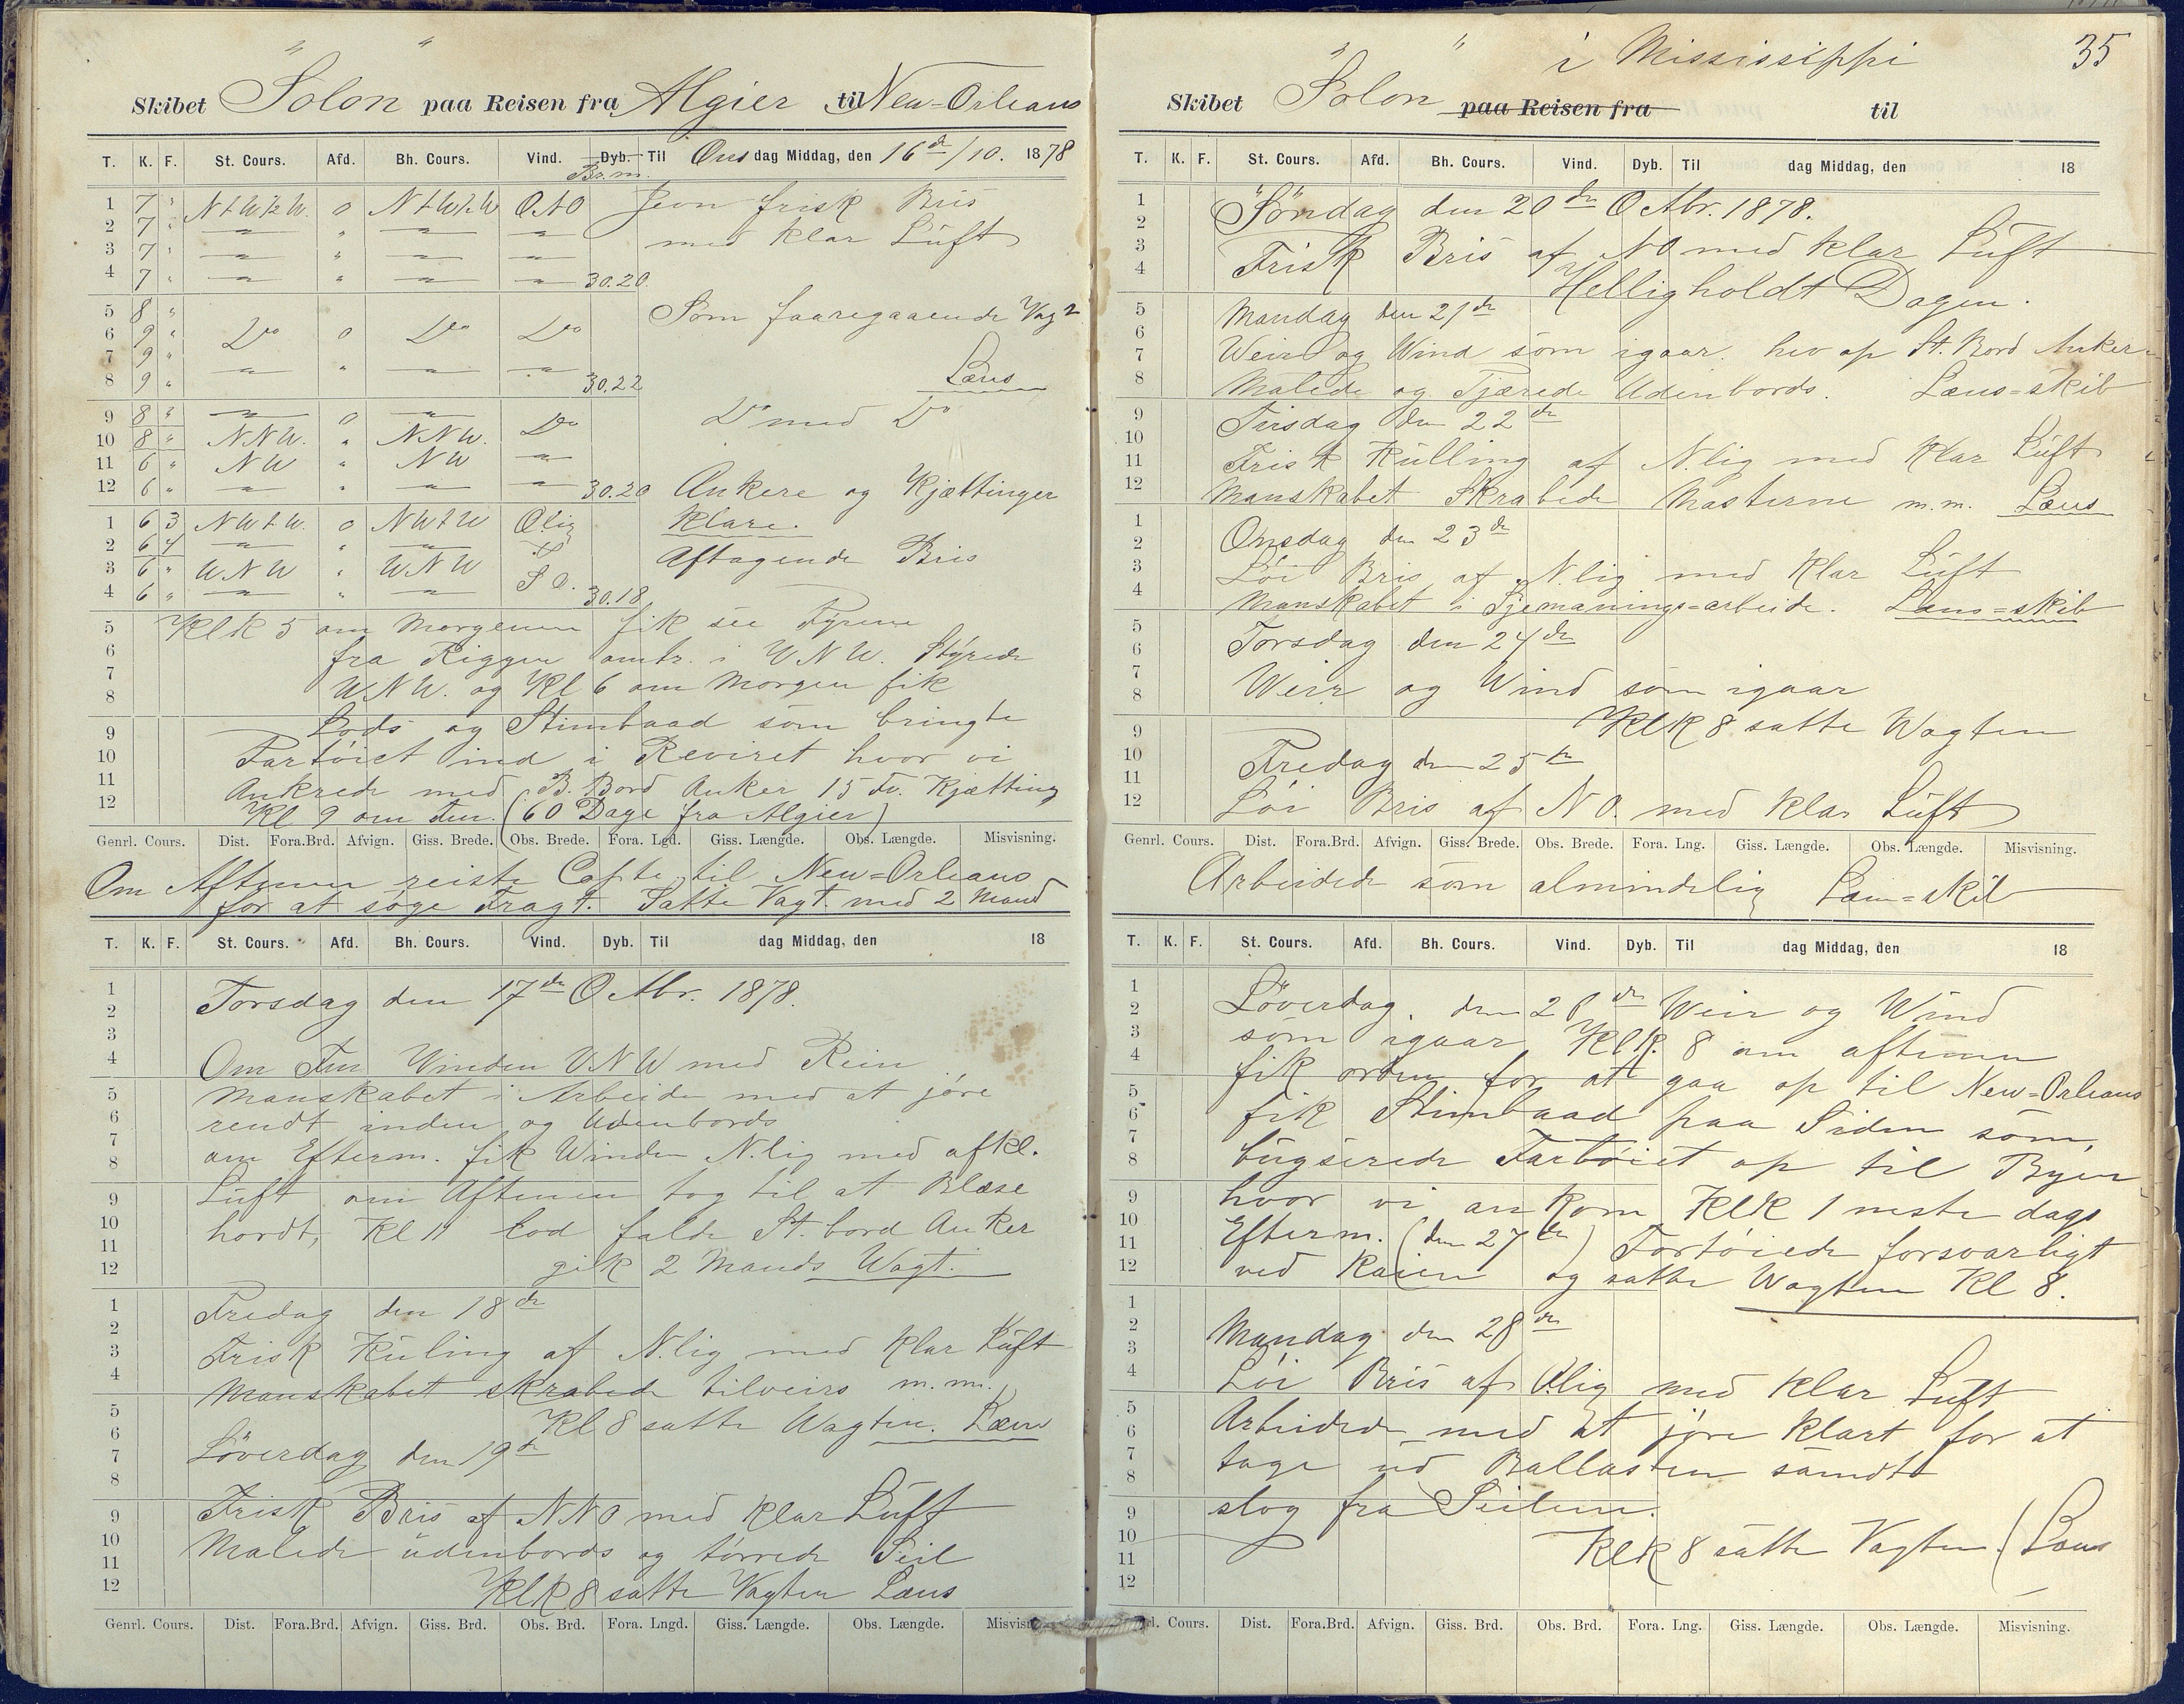 Skibet "Solon" paa Reisen fra Algier til New-Orleans
T. K. F. St. Cours. Afd. Bh. Cours. Vind. Dyb. Til Onsdag Middag, den 16de/10. 1878
Br.m.
1 7 " N t W ½ W. 0 N t W ½ W ONO Jevn frisk Bris
2 7 " — " — — med klar Luft
3 7 " — " — —
4 7 " — " — — 30.20
5 8 " Som foaregaaende Vagt
6 9 " Do 0 Do Do
7 9 " — " — —
8 9 " 30.22 Læns
9 8 " — 0 — Do Do med Do
10 8 " NNW. " NNW.
11 6 " NW " NW —
12 6 " — " — — 30.20 Ankere og Kjættinger
1 6 3 NW t W. 0 NW t W Olig klare.
2 6 4 — " — Aftagende Bris
3 6 " WNW " WNW SO.
4 6 " — " — 30.18
5 KlK 5 om Morgenen fik see Fyrene
6 fra Riggen omtr. i WNW. Styrede
7 WNW. og Kl 6 om Morgen fik
8
9 Lods og Stimbaad som bringte
10 Fartöiet ind i Reviret hvor vi
11 Ankrede med B. Bord Anker 15 fv. Kjætting
12 Kl 9 om Fm. (60 Dage fra Algier)
Genrl. Cours. Dist. Fora.Brd. Afvign. Giss. Brede. Obs. Brede. Fora. Lgd. Giss. Længde. Obs. Længde. Misvisning.
Om Aftenen reiste Capte. til New-Orleans
for at søge Fragt. Satte Vagt med 2 Mand
T. K. F. St. Cours. Afd. Bh. Cours. Vind. Dyb. Til dag Middag, den 18
1 Torsdag den 17de Octbr. 1878.
2
3
4 Om Fm Vinden VNW med Rein
5 Manskabet i Arbeide med at jöre
6 rendt inden og Udenbords
7 om Efterm. fik Winden N.lig med afkl.
8
9 Luft om Aftenen tog til at Blæse
10 hordt, Kl 11 lod falde St. bord Anker
11
12 gik 2 Mands Wagt.
1 Fredag den 18de
2
3 Frisk Kuling af N.lig med klar Luft
4 Manskabet skrabede tilveirs m.m.
5 Kl 8 satte Wagten. Læns
6
7 Löverdag den 19de
8
9 Frisk Bris af NNO med klar Luft
10 Malede udenbords og törrede Seil
11
12 KlK 8 satte Vagten Læns
Genrl. Cours. Dist. Fora.Brd. Afvign. Giss. Brd. Obs. Brd. Fora. Lngd. Giss. Længde. Obs. Længde. Misvisn
35
Skibet "Solon" paa Reisen fra i Mississippi til
T. K. F. St. Cours. Afd. Bh. Cours. Vind. Dyb. Til dag Middag, den 18
1 Söndag den 20de Octbr. 1878.
2
3 Frisk Bris af NO med klar Luft
4 Helligholdt Dagen.
5 Mandag den 21de
6
7 Weir og Wind som igaar. hev op St. Bord Anker
8 Malede og Tjærede Udenbords. Læns-skib
9 Tirsdag den 22de
10
11 Frisk Kulling af N.lig med klar Luft
12 Manskabet Skrabede Masterne m.m. Læns
1
2 Onsdag den 23de
3 Löi Bris af N.lig med klar Luft
4 Manskabet i Sjømanings-arbeide. Læns-skib
5
6 Torsdag den 24de
7
8 Weir og Wind som igaar
9 KlK 8 satte Wagten
10 Fredag den 25de
11
12 Löi Bris af NO. med klar Luft
Genrl. Cours. Dist. Fora.Brd. Afvign. Giss. Brede. Obs. Brede. Fora. Lng. Giss. Længde. Obs. Længde. Misvisning.
Arbeidede som almindelig Læns-skib
T. K. F. St. Cours. Afd. Bh. Cours. Vind. Dyb. Til dag Middag, den 18
1 Löverdag. den 26de Weir og Wind
2
3 som igaar KlK. 8 om aftenen
4 fik orden for at gaa op til New-Orleans
5
6 fik Stimbaad paa Siden som,
7
8 bugserede Fartöiet op til Byen
9 hvor vi ankom KlK 1 neste dags
10
11 Efterm. (den 27de) Fortöiede forsvarligt
12 ved Kaien og satte Wagten Kl 8.
1
2 Mandag den 28de
3
4 Löi Bris af Olig med klar Luft
5
6 Arbeidede med at jöre klart for at
7 tage ud Ballasten samdt
8
9 slog fra Seilene.
10
11 KlK 8 satte Vagten. Læns
12
rl. Cours. Dist. Fora.Brd. Afvign. Giss. Brd. Obs. Brd. Fora. Lng. Giss. Længde. Obs. Længde. Misvisning.